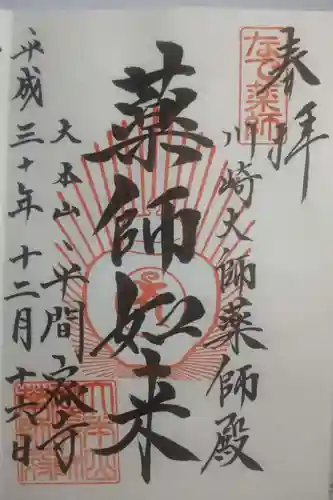 奉拝
なで薬師
川崎大師薬師殿
薬師如来
大本山 平間寺
平成三十年十二月十六日